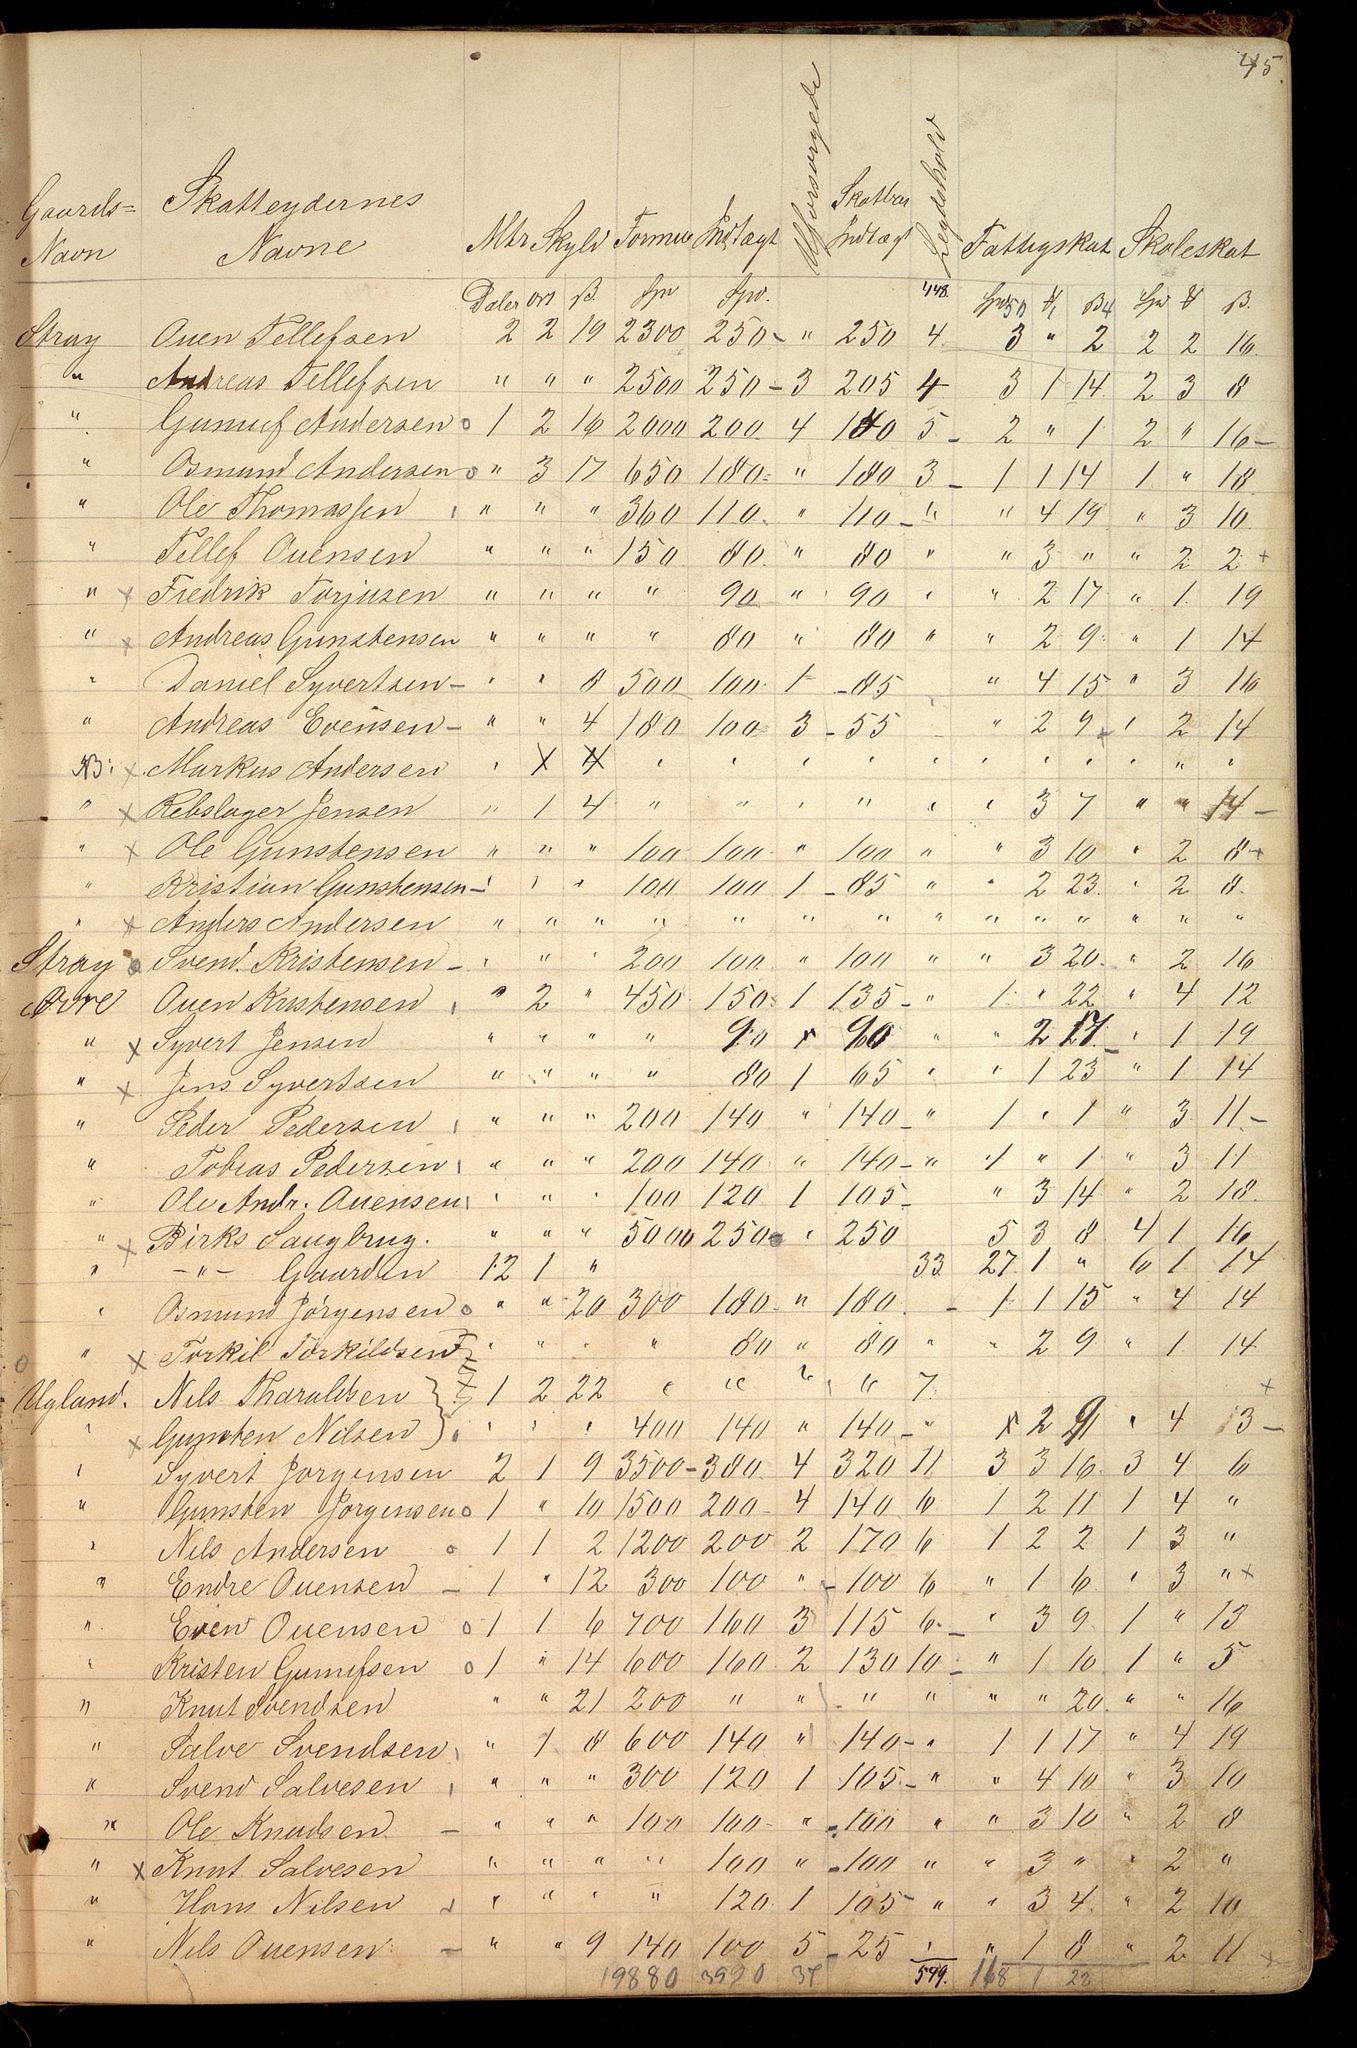 45.
Gaards= Navn Skatteydernes Navne Mtr Skyld Formue Indtægt Uforsørgede Skattbar Indtægt Legdehold Fattigskat Skoleskat
Daler ort ß. Spd Spd. 448. Spd 50 ß 4 Spd ß.
Stray Ouen Tellefsen 2 2 19 2300 250 - " 250 4 3 " 2 2 2 16
" Andreas Tellefsen " " " 2500 250 - 3 205 4 3 1 14 2 3 8
" Gunuf Andersen o 1 2 16 2000 200 4 140 5 - 2 " 1 2 " 16 -
" Osmund Andersen o " 3 17 650 180 " 180 3 - 1 1 14 1 " 18
" Ole Thomassen " " " 360 110 " 110 - " " 4 19 " 3 10
" Tellef Ouensen " " " 150 80 " 80 " " 3 " " 2 2 +
" x Fredrik Torjusen " " " " 90 " 90 " " 2 17 " 1 19
" x Andreas Gunstensen " " " " 80 " 80 " " 2 9 " 1 14
" Daniel Syvertsen - " " 8 500 100 1 - 85 " 4 15 " 3 16
" Andreas Evensen - " " 4 180 100 3 - 55 " 2 9 " 2 14
NB: x Markus Andersen " x 4 " " " " " " " " " " "
" x Rebslager Jensen " 1 4 " " " " " " 3 7 " " 14 -
" x Ole Gunstensen " " " 100 100 " 100 " " 3 10 " 2 8 +
" Kristian Gunstensen - " " " 100 100 1 - 85 " " 2 23 " 2 8
" x Anders Andersen " " " " " " " " " " " " " "
Stray o Svend Kristensen - " " " 200 100 " 100 " " 3 20 " 2 16
Aore Ouen Kristensen " 2 " 450 150 1 135 - " 1 " 22 " 4 12
" x Syvert Jensen " " " " 90 x 90 " " 2 17 - " 1 19
" x Jens Syvertsen " " " " 80 1 65 " " 1 23 " 1 14
" Peder Pedersen " " " 200 140 " 140 - " 1 " 1 " 3 11 -
" Tobias Pedersen " " " 200 140 " 140 - " 1 " 1 " 3 11
" Ole Andr. Ouensen " " " 100 120 1 105 - " 3 14 " 2 18
" x Birks Saugbrug. " " " 5000 250 " 250 5 3 8 4 1 16
" - " - Gaarden 12 1 " 33 27 1 " 6 1 14
" Osmund Jörgensen o " " 20 300 180 " 180 - 1 1 15 " 4 14
" x Torkil Torkildsen " " " " 80 " 80 " " 2 9 " 1 14
Ugland. Nils Tharaldsen } 1 2 22 " " " " 7 +
" x Gunsten Nilsen } " " " 400 140 " 140 - " x 2 9 " 4 13 -
" Syvert Jörgensen 2 1 9 3500 - 380 4 320 11 3 3 16 3 4 6
" Gunsten Jörgensen o 1 " 10 1500 200 - 4 140 6 1 2 11 1 4 "
" Nils Andersen o 1 1 2 1200 200 2 170 6 1 2 2 1 3 "
" Endre Ouensen - 1 " 12 300 100 " - 100 6 " 1 6 " 3 " x
" Even Ouensen o 1 1 6 700 160 3 115 6 - " 3 9 1 " 13
" Kristen Gunufsen o 1 " 14 600 160 2 130 10 - " 1 10 1 " 5
" Knut Svendsen " " 21 200 " " " " " " 20 " " 16
" Salve Svendsen " 1 8 600 140 " 140 - " 1 1 17 " 4 19
" Svend Salvesen " " " 300 120 1 105 - " " 4 10 " 3 10
" Ole Knudsen - " " " 100 100 - " - 100 " " 3 10 " 2 8
" x Knut Salvesen " " " " 100 " - 100 " " 3 " " 2 "
" Hans Nilsen " " " " 120 1 105 - " " 3 4 " 2 10
" Nils Ouensen - " " 9 140 100 5 - 25 " " 1 8 " 2 11 x
19880 3990 37 599. 168 1 22